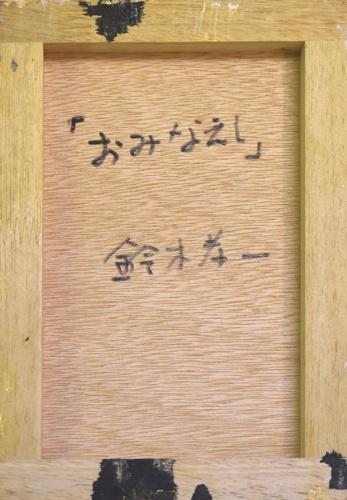 「おみなえし」
鈴木恭一